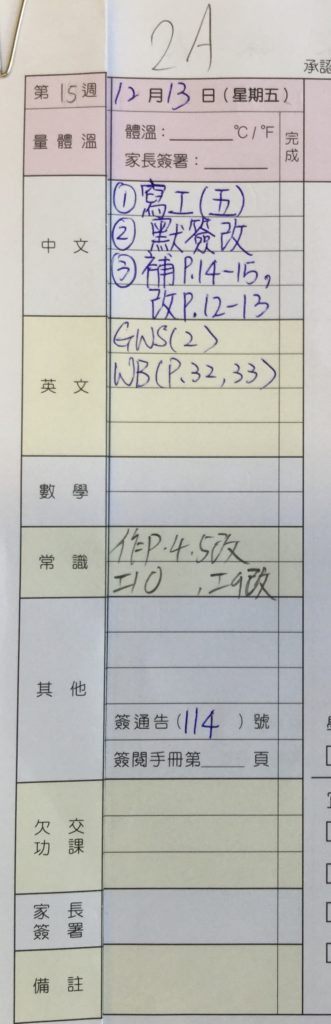 2A
承認
第15週 12月13日(星期五)
量體溫 體溫:______°C/°F 完成
家長簽署:______
中文 ①寫工(五)
②默簽改
③補P.14-15,
改P.12-13
英文 GWS(2)
WB(P.32,33)
數學
常識 作P.4.5改
工10 ,工9改
其他
簽通告(114)號
簽閱手冊第____頁
欠交功課
家長簽署
備註